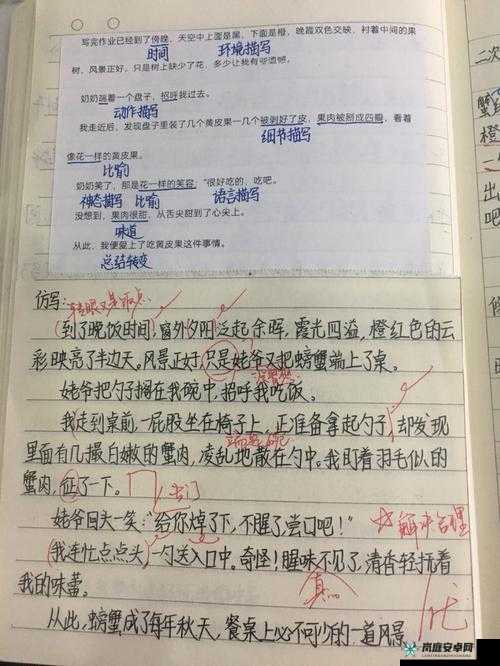 写完作业已经到了傍晚，天空中上面是黑，下面是橙，晚霞双色交映，衬着中间的果
时间 环境描写
树，风景正好。只是树上缺少了花，多少让我有些遗憾。
奶奶端着一个盘子，招呼我过去。
动作描写
我走近后，发现盘子里装了几个黄皮果一几个被剥好了皮，果肉被掰成四瓣，看着
细节描写
像花一样的黄皮果。
比喻
奶奶笑了，那是花一样的笑容，“很好吃的，吃吧。
神态描写 比喻 语言描写
没想到，果肉很甜，从舌尖甜到了心尖上。
味道
从此，我便爱上了吃黄皮果这件事情。
总结转变
仿写：
到了晚饭时间，窗外夕阳泛起余晖，霞光四溢，橙红色的云
彩映亮了半边天。风景正好，只是姥爷又把螃蟹端上了桌。
姥爷把勺子搁在我碗中，招呼我吃饭。
我走到桌前，一屁股坐在椅子上，正准备拿起勺子，却发现
里面有几撮白嫩的蟹肉，凌乱地散在勺中。我盯着羽毛似的
蟹肉，怔了一下。
姥爷回头一笑：“给你焯了下，不腥了尝口吧！”
解决合理
我连忙点点头，一勺送入口中。奇怪！腥味不见了，清香轻抚着
我的味蕾。
真
从此，螃蟹成了每年秋天，餐桌上必不可少的一道风景
优
二次
蟹
橙
出
吧
闲庭安卓网